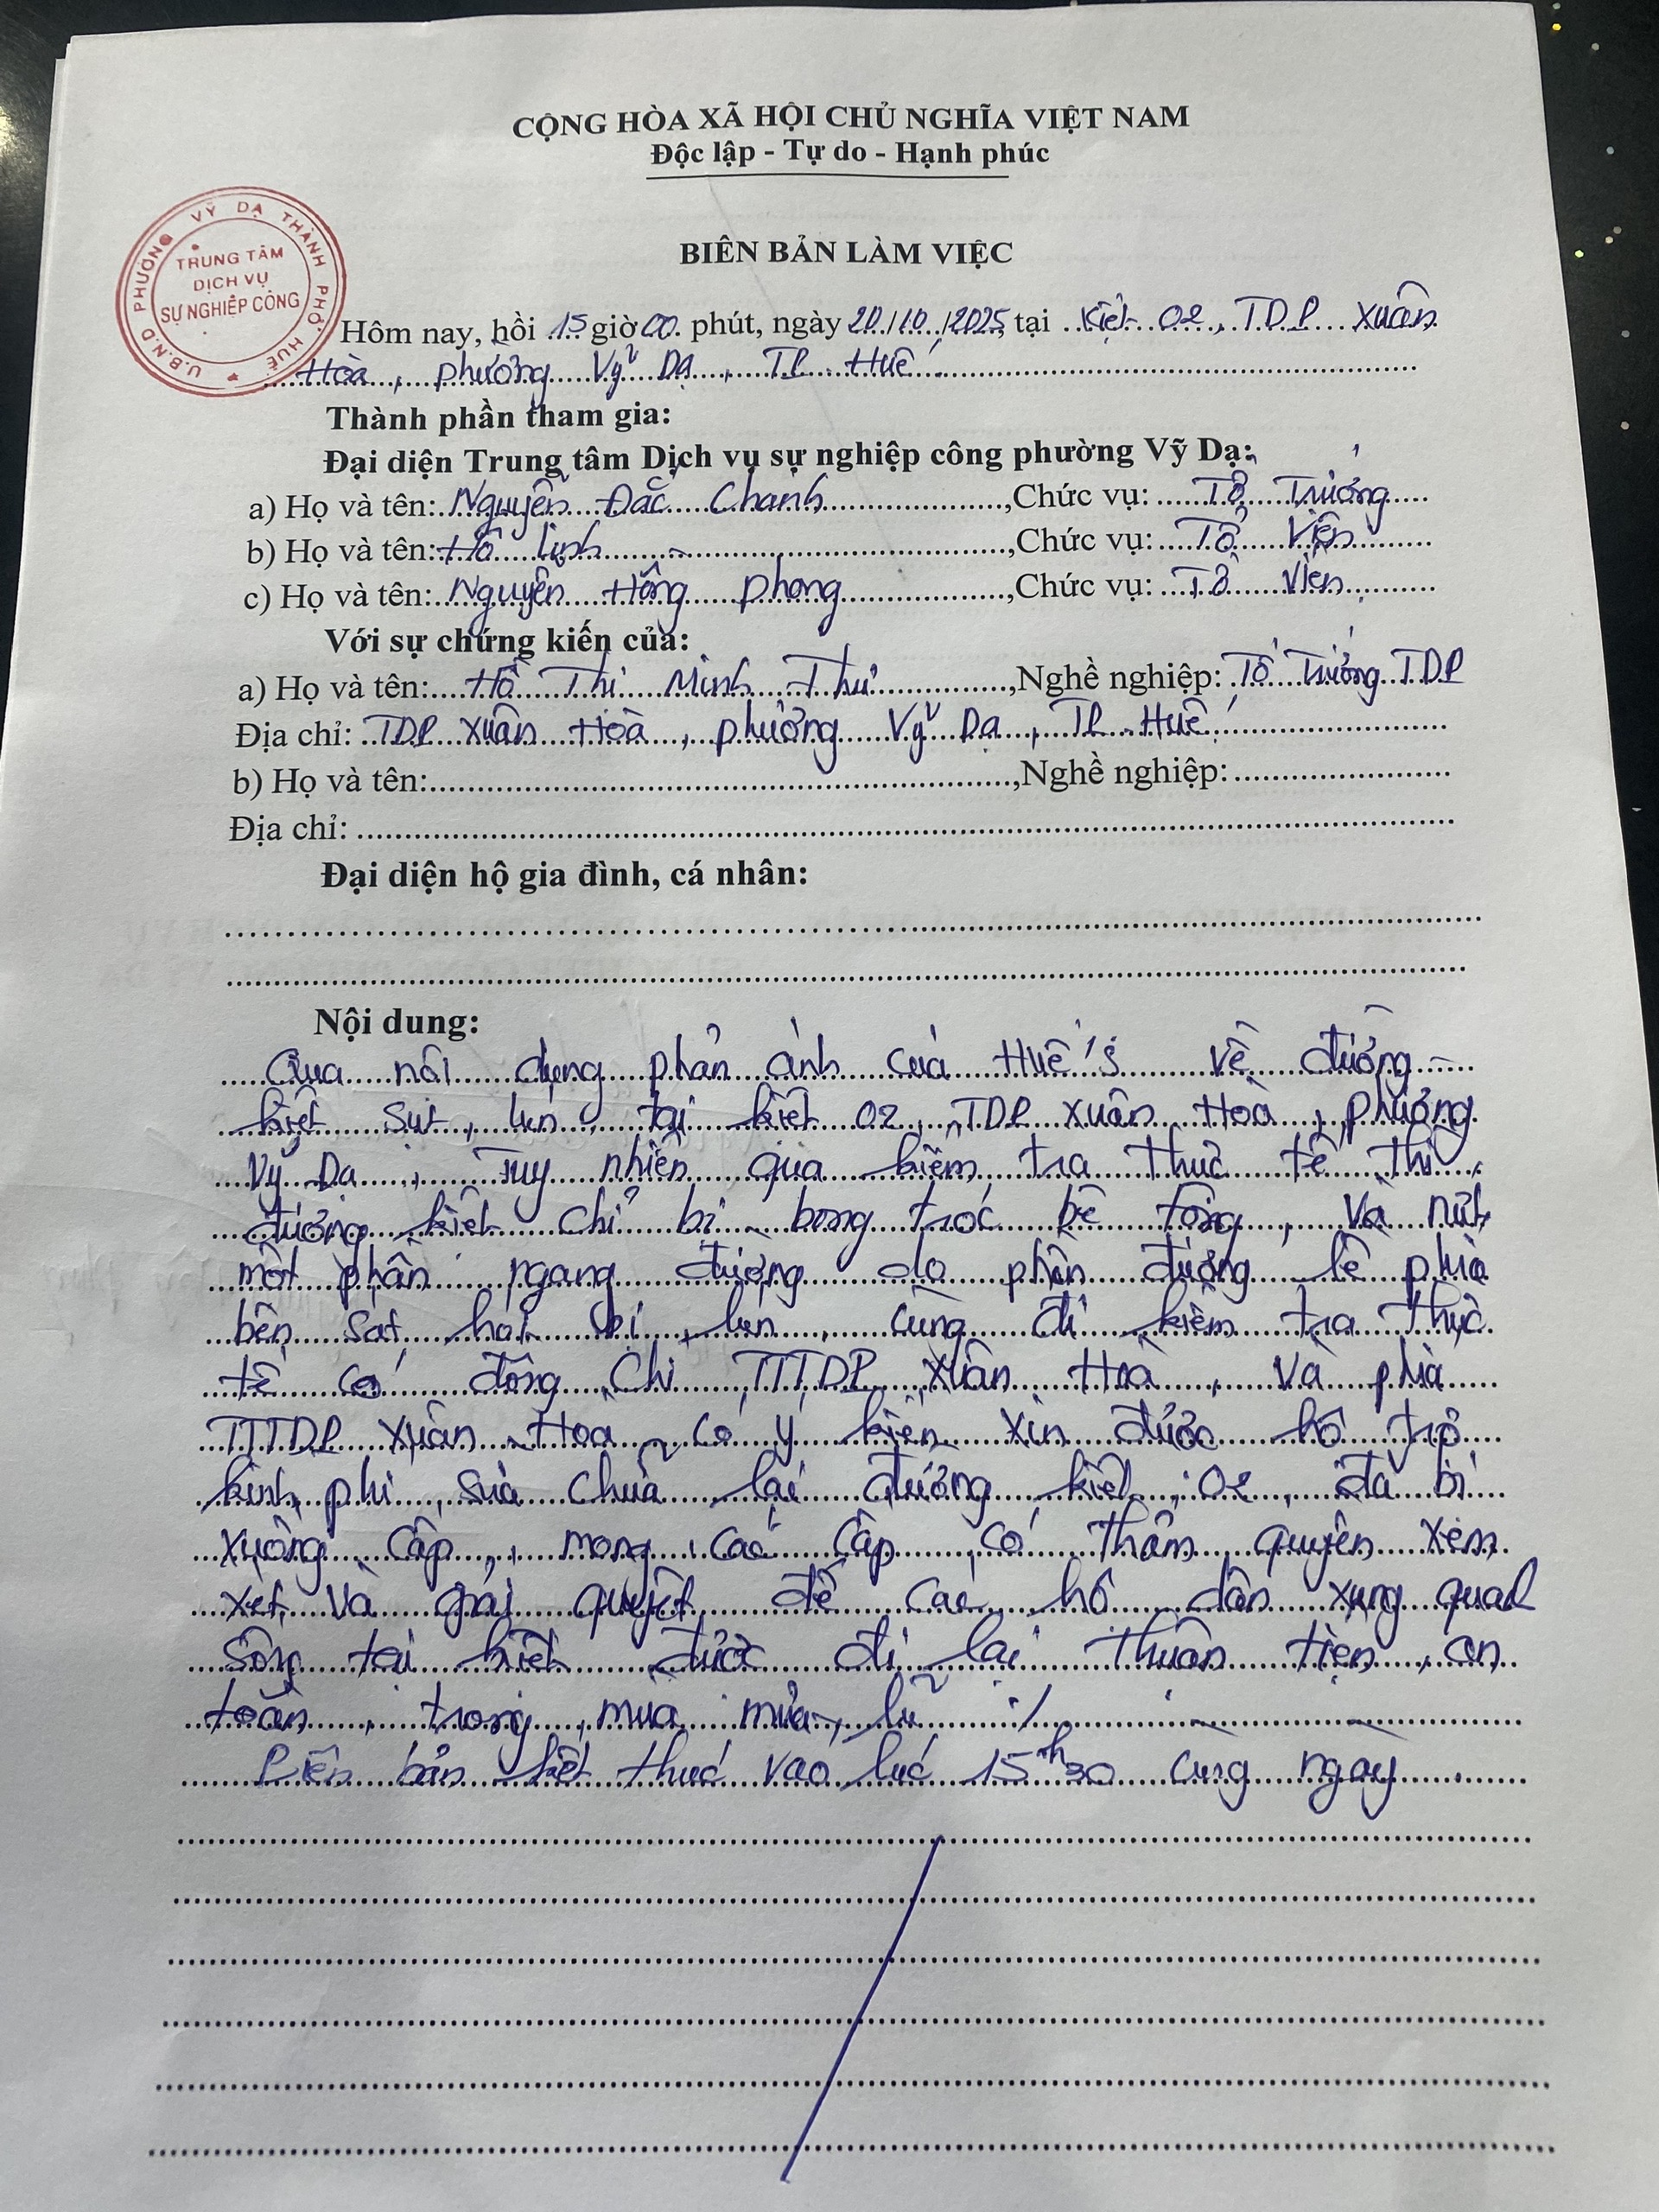 CỘNG HÒA XÃ HỘI CHỦ NGHĨA VIỆT NAM
Độc lập - Tự do - Hạnh phúc
U.B.N.D PHƯỜNG VỸ DẠ THÀNH PHỐ HUẾ
TRUNG TÂM
DỊCH VỤ
SỰ NGHIỆP CÔNG
BIÊN BẢN LÀM VIỆC
Hôm nay, hồi 15 giờ 00 phút, ngày 20/10/2025, tại Kiệt 02, TDP Xuân
Hoà, phường Vỹ Dạ, TP. Huế
Thành phần tham gia:
Đại diện Trung tâm Dịch vụ sự nghiệp công phường Vỹ Dạ:
a) Họ và tên: Nguyễn Đắc Chanh, Chức vụ: Tổ Trưởng
b) Họ và tên: Hồ Linh, Chức vụ: Tổ Viên
c) Họ và tên: Nguyễn Hồng Phong, Chức vụ: Tổ Viên
Với sự chứng kiến của:
a) Họ và tên: Hồ Thị Minh Thư, Nghề nghiệp: Tổ Trưởng TDP
Địa chỉ: TDP Xuân Hoà, phường Vỹ Dạ, TP. Huế
b) Họ và tên:, Nghề nghiệp:
Địa chỉ:
Đại diện hộ gia đình, cá nhân:
Nội dung:
Qua nội dung phản ánh của Huế S về đường
kiệt sụt, lún tại kiệt 02, TDP Xuân Hoà, phường
Vỹ Dạ, Tuy nhiên qua kiểm tra thực tế thì
đường kiệt chỉ bị bong tróc bê tông, và nứt
một phần ngang đường do phần đường lề phía
bên sát hói bị lún, cùng đi kiểm tra thực
tế có đồng chí TTTDP Xuân Hoà, và phía
TTTDP Xuân Hoà có ý kiến xin được hỗ trợ
kinh phí sửa chữa lại đường kiệt 02, đã bị
xuống cấp, mong các cấp có thẩm quyền xem
xét và giải quyết để các hộ dân xung quanh
sống tại kiệt được đi lại thuận tiện, an
toàn, trong mùa mưa, lũ ./
Biên bản kết thúc vào lúc 15h30 cùng ngày.